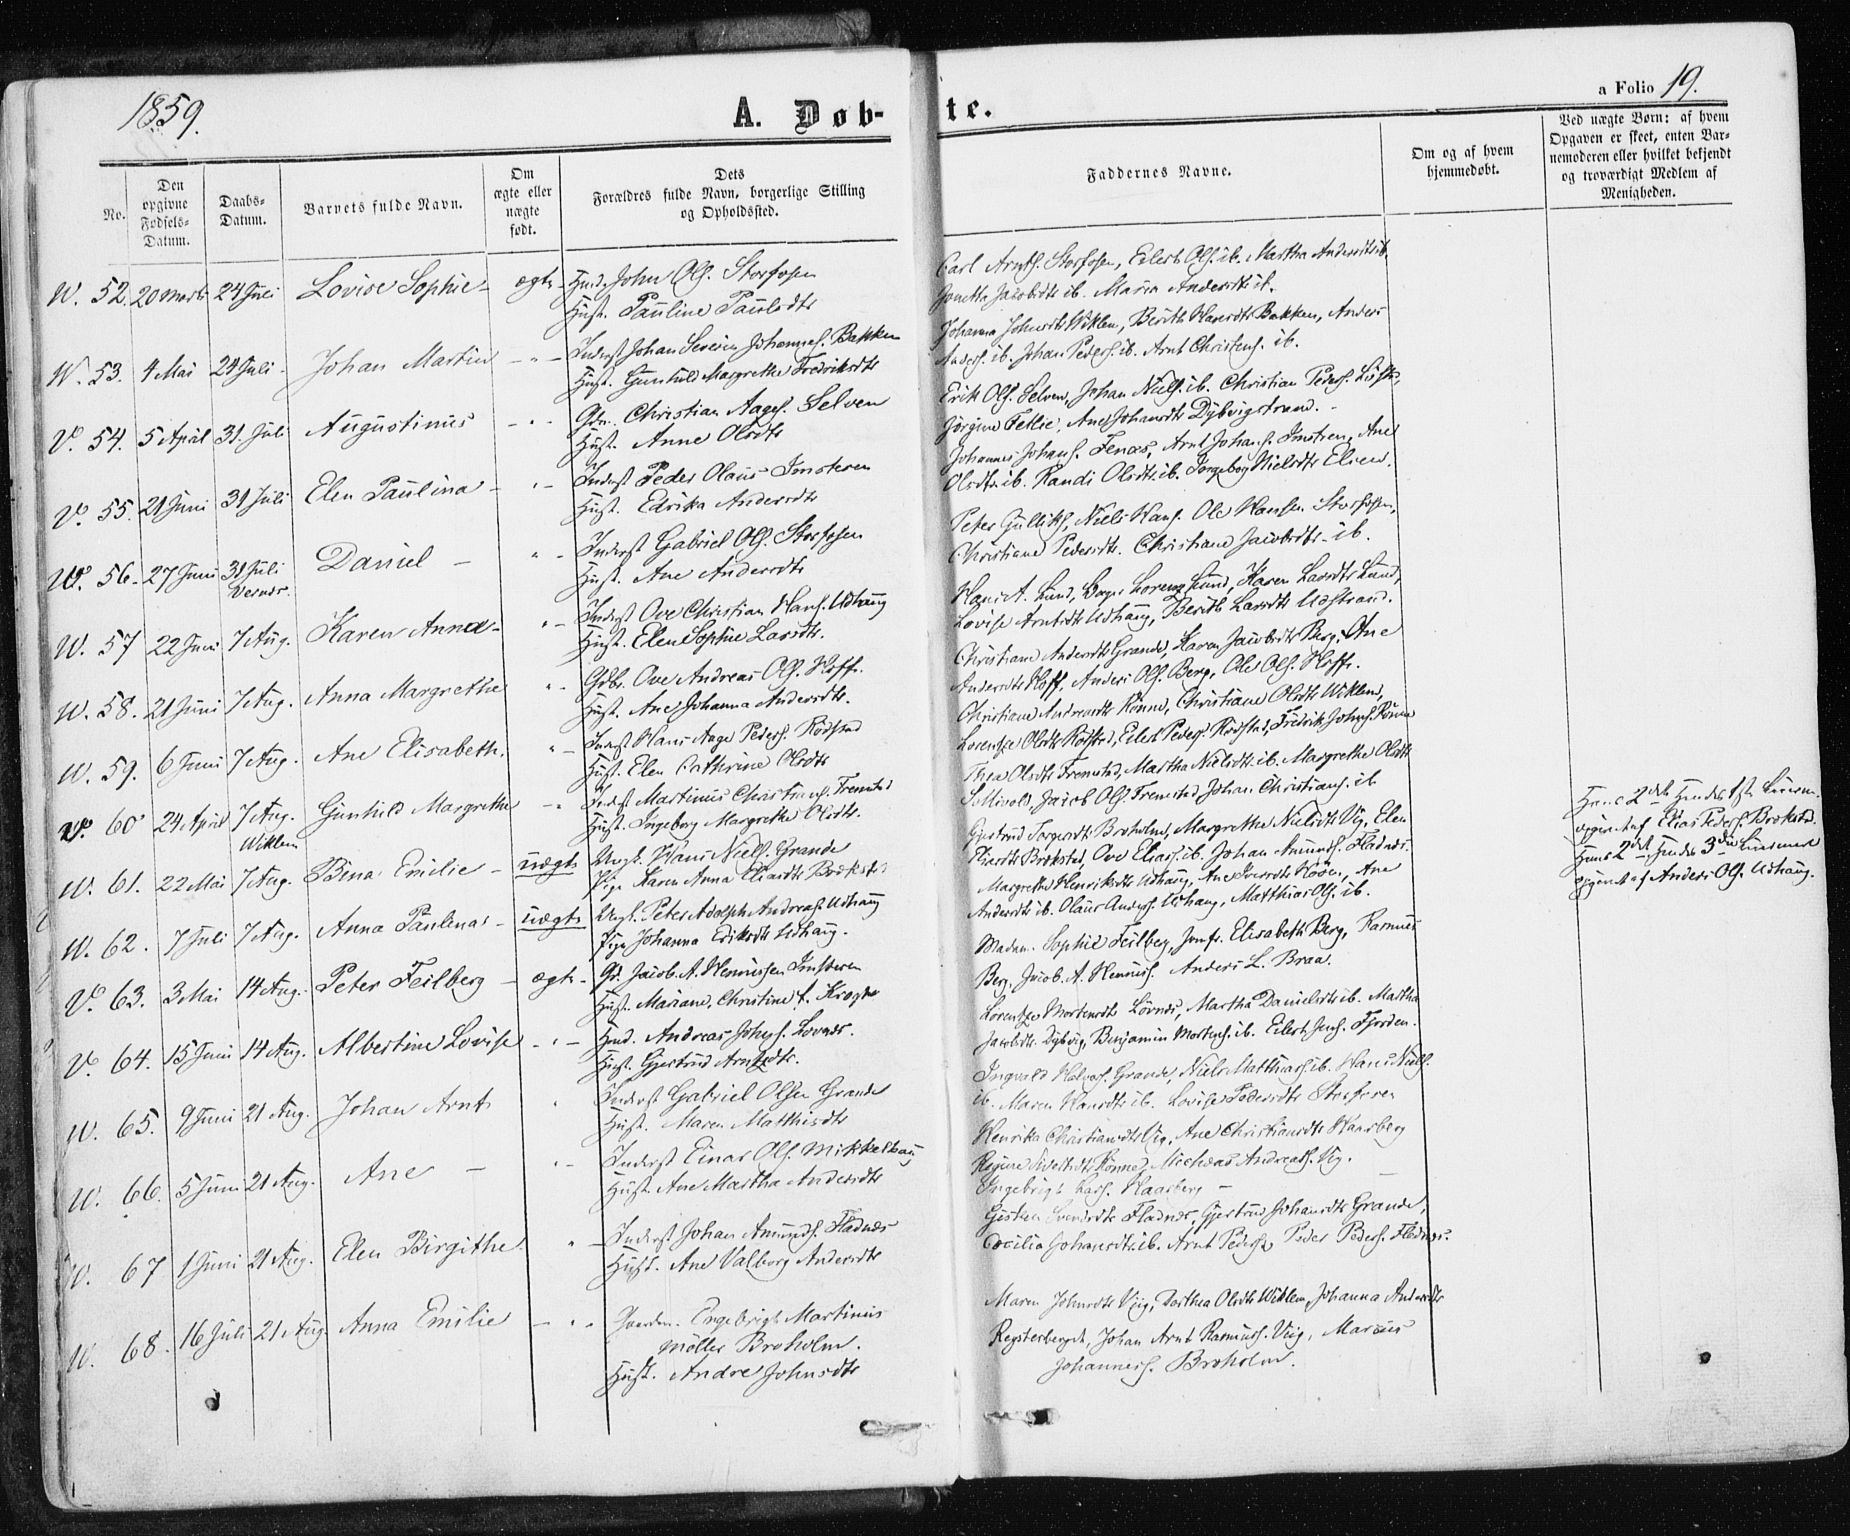 1859.
A. Døb-
te.
a Folio 19.
No.
Den opgivne Fødsels-Datum.
Daabs-Datum.
Barnets fulde Navn.
Om ægte eller uægte født.
Dets Forældres fulde Navn, borgerlige Stilling og Opholdssted.
Faddernes Navne.
Om og af hvem hjemmedøbt.
Ved uægte Børn: af hvem Opgaven er skeet, enten Barnemoderen eller hvilket bekjendt og troværdigt Medlem af Menigheden.
W. 52. 20 Marts 24 Juli Lovise Sophie - ægte - Husm. John Ols. Storfosen
Hust. Pauline Paulsdtr
Carl Arnts. Storfosen, Eilert Ols. ib. Martha Andersdtr ib.
Jonetta Jacobsdtr ib. Maria Andersdtr ib.
W. 53. 4 Mai 24 Juli - Johan Martin - " - Inderst Johan Severin Johannes. Bakken
Hust. Gunhild Margrethe Fredriksdtr
Johanna Johnsdtr Wiklem, Berith Haversdtr Bakken, Anders
Anders. ib. Johan Peders. ib. Arnt Christens. ib.
V. 54. 5 April 31. Juli Augustinus - " - Gdm. Christian Aages. Selven
Hust. Anne Olsdtr
Erik Ols. Selven, Johan Niels. ib. Christian Peders.
Jørgine Fetlie, Ane Johansdtr Dybvigstrand. -
V. 55. 21 Juni 31 Juli Elen Paulina - " - Inderst Peder Olaus Imsteren
Hust. Edrika Andersdtr
Johannes Johans. Fenæs, Arnt Johans. Imstren, Ane
Olsdtr ib. Randi Olsdtr. ib. Ingeborg Nielsdtr
W. 56. 27 Juni 31 Juli Daniel - " - Inderst Gabriel Ols. Storfosen
Vernæs.
Hust. Ane Andersdtr
Peter Gulliks., Niels Hans. Ole Hansen Storfosen,
Christiane Pedersdtr. Christiane Jacobsdtr - ib.
W. 57 22 Juni 7 Aug. Karen Anna - " - Inderst Ove Christian Hans. Udhaug
Hust. Elen Sophie Larsdtr.
Hans A. Lund, Lorenz Lund, Karen Larsdtr Lund,
Lovise Arntsdtr Udhaug, Berith Larsdtr Udstrand.
W. 58. 21 Juni 7 Aug. Anna Margrethe " - Gdbr. Ove Andreas Ols. Hoff.
Hust. Ane Johanna Andersdtr.
Christiane Andersdtr Grande, Karen Jacobsdtr Berg, Ane
Andersdtr Hoff, Anders Ols. Berg, Ole Ols. Hoff.
W. 59. 6 Juni 7 Aug. Ane Elisabeth. " - Inderst Hans Aage Peders. Rödstad
Hust. Elen Cathrine Olsdtr
Christiane Andreasdtr Rønne, Christiane Olsdtr Wiklem,
Lorentze Olsdtr Røstad, Eilert Peders. Rødstad, Fredrik Johns. Rønne
V. 60 24 April 7 Aug. Gunhild Margrethe - " Inderst Martinus Christians. Fremstad
Wiklem
Hust. Ingeborg Margrethe Olsdtr.
Thea Olsdtr Fremstad, Martha Nielsdtr ib. Margrethe Olsdtr
Jacob Ols. Fremstad, Johan Christians. ib
W. 61. 22 Mai 7 Aug. Bina Emilie - uægte Ungk. Hans Niels. Grande
Pige Karen Anna Eliasdtr Brækstad
Gjertrud Broholm, Margrethe Nielsdtr Vig, Elen
Eliasdtr Brækstad, Ove Elias. ib. Johan Amunds. Fladnes.
Hans 2det Hendes 1ste Leierm.
opgivet af Elias Peders. Brækstad.
W. 62. 7 Juli 7 Aug. Anna Paulena - uægte Ungk. Peter Adolph Andreas. Udhaug
Pige Johanna Eriksdtr Udhaug.
Margrethe Henriksdtr Udhaug, Ane Høøen, Ane
Andersdtr ib. Olaus Anders. Udhaug, Matthias Ols. ib.
Hans 2det, Hendes 3die Leiermaal
opgivet af Anders Ols. Udhaug.
V. 63. 3 Mai 14 Aug. - Peter Feilberg - ægte - Gr. Jacob A. Hennissen Imsteren
Hust. Mariane Christine f. Krogh
Madam. Sophie Feilberg, Jomfr. Elisabeth Berg, Rasmus
Berg, Jacob A. Hennis. Anders L. Braa.
V. 64. 15 Juni 14 Aug. Albertine Lovise - " - Husm. Andreas Johns. Lovnæs.
Hust. Gjertrud Arntzdtr.
Lorentze Mortensdtr Lövnæs, Martha Danielsdtr ib. Martha
Jacobsdtr. Dybvig, Benjamin Mortens. ib. Eilert Jens. Fjorden.
W. 65. 9 Juni 21 Aug. Johan Arnt " Inderst Gabriel Olsen Grande
Hust. Maren Matthisdtr
Ingvald Halvors. Grande, Niels Matthias. ib. Hans Niels.
ib. Maren Hansdtr ib. Lovise Pedersdtr Storfosen
W. 66. 5 Juni 21 Aug. Ane - " - Inderst Einar Ols. Mikkelhaug
Hust. Ane Martha Andersdtr
Henrika Christiansdtr Vig, Ane Christiansdtr Haarberg
Regine Sivertsdtr Rønne, Micheas Andreas. Vig. -
Ingebrigt Lars. Haarberg -
W. 67 1 Juni 21 Aug. Elen Birgithe. " - Inderst Johan Amunds. Fladnæs
Hust. Ane Valborg Andersdtr
Gjertrud Johansdtr Grande,
Cecilia Johansdtr ib. Arnt Peders. Peder Peders. Fladnæs.
W. 68. 16 Juli 21 Aug. Anna Emilie - " - Engebrigt Martinus
Møller Broholm.
Hust. Andre Johnsdtr
Maren Johnsdtr Viig, Dorthea Olsdtr Wiklem, Johanna Andersdtr
Johan Arnt Rasmus. Viig, Marcus
Johannes. Broholm.